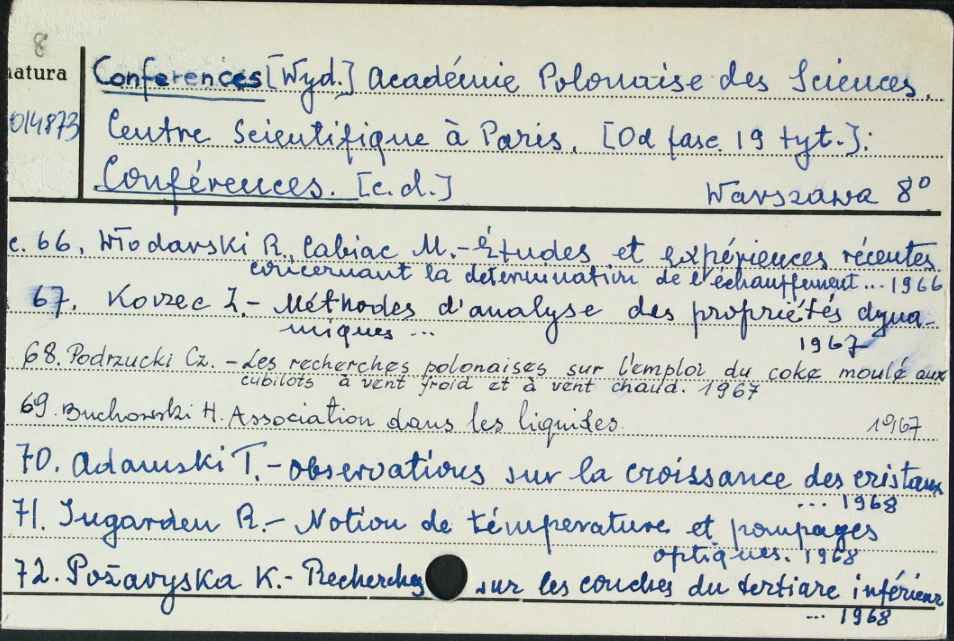 8
natura
014873
Conferences [Wyd.] Académie Polonaise des Sciences.
Centre Scientifique à Paris. [Od fasc. 19 tyt.]:
Conférences. [c.d.]
Warszawa 8°
c. 66. Włodarski R., Cabiac M. - Études et expériences récentes
concernant la détermination de l'échauffement ... 1966
67. Korzec Z. - Méthodes d'analyse des propriétés dyna-
miques ... 1967
68. Podrzucki Cz. - Les recherches polonaises sur l'emploi du coke moulé aux
cubilots à vent froid et à vent chaud. 1967
69. Buchowski H. Association dans les liquides. 1967
70. Adamski T. - Observations sur la croissance des cristaux
... 1968
71. Ingarden R. - Notion de témperature et pompages
optiques. 1968
72. Pożaryska K. - Recherches sur les couches du tertiare inférieur
... 1968